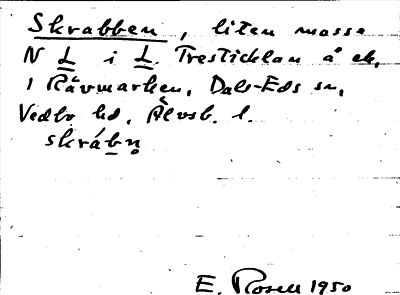 Skrabben, liten mosse
N L i L. Tresticklan å ek.
1 Rävmarken, Dals-Eds sn,
Vedbo hd, Älvsb. l.
skrábn̥
E. Rosell 1950